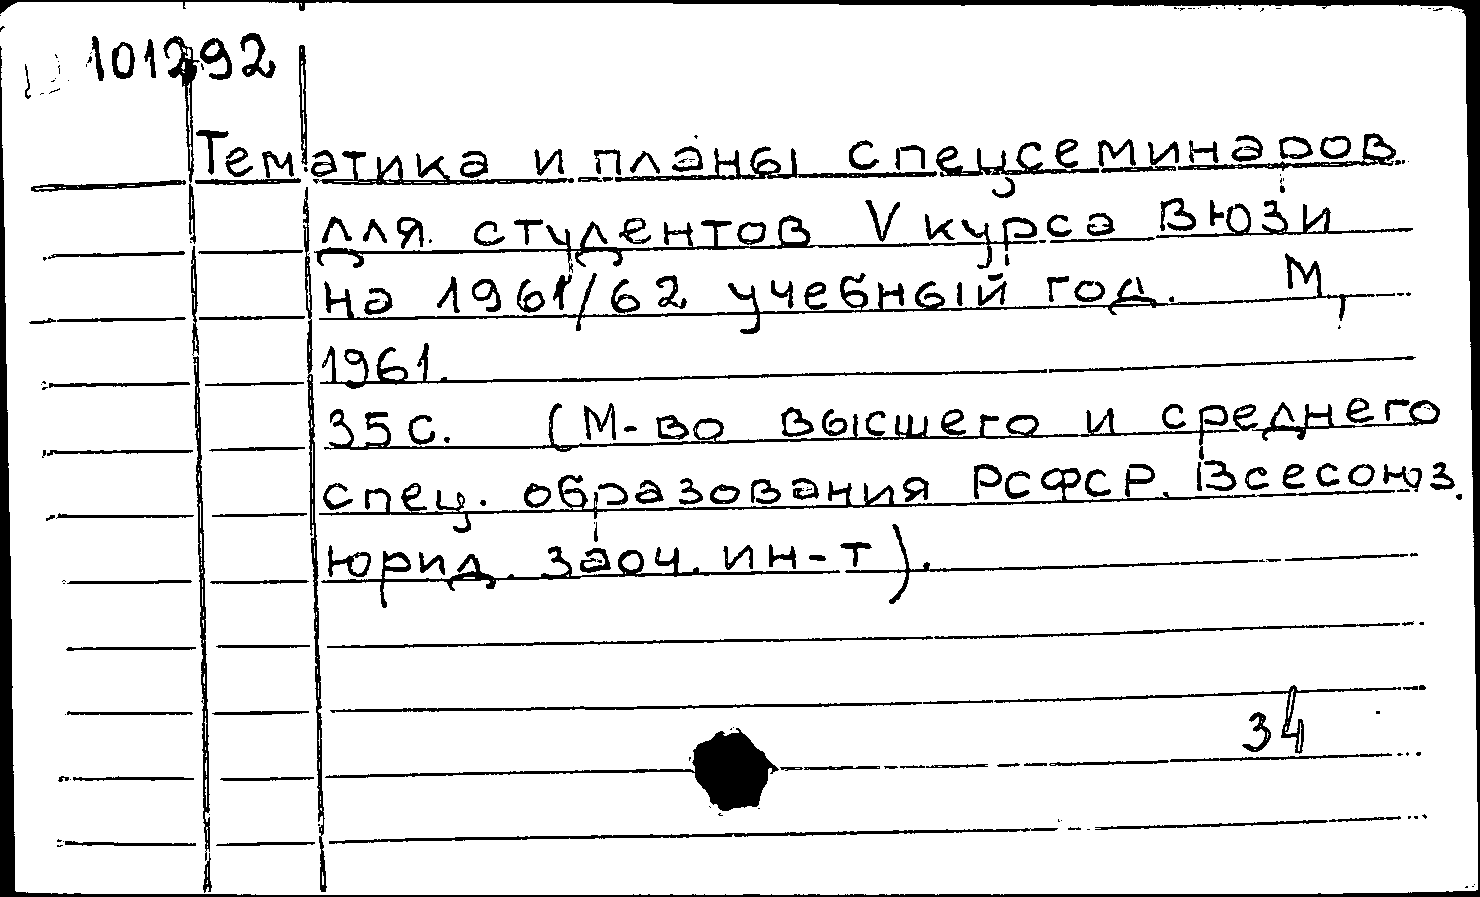 101292
Тематика и планы спецсеминаров
для студентов V курса ВЮЗИ
на 1961/62 учебный год. М,
1961.
35 с. (М-во высшего и среднего
спец. образования РСФСР. Всесоюз.
юрид. заоч. ин-т).
34